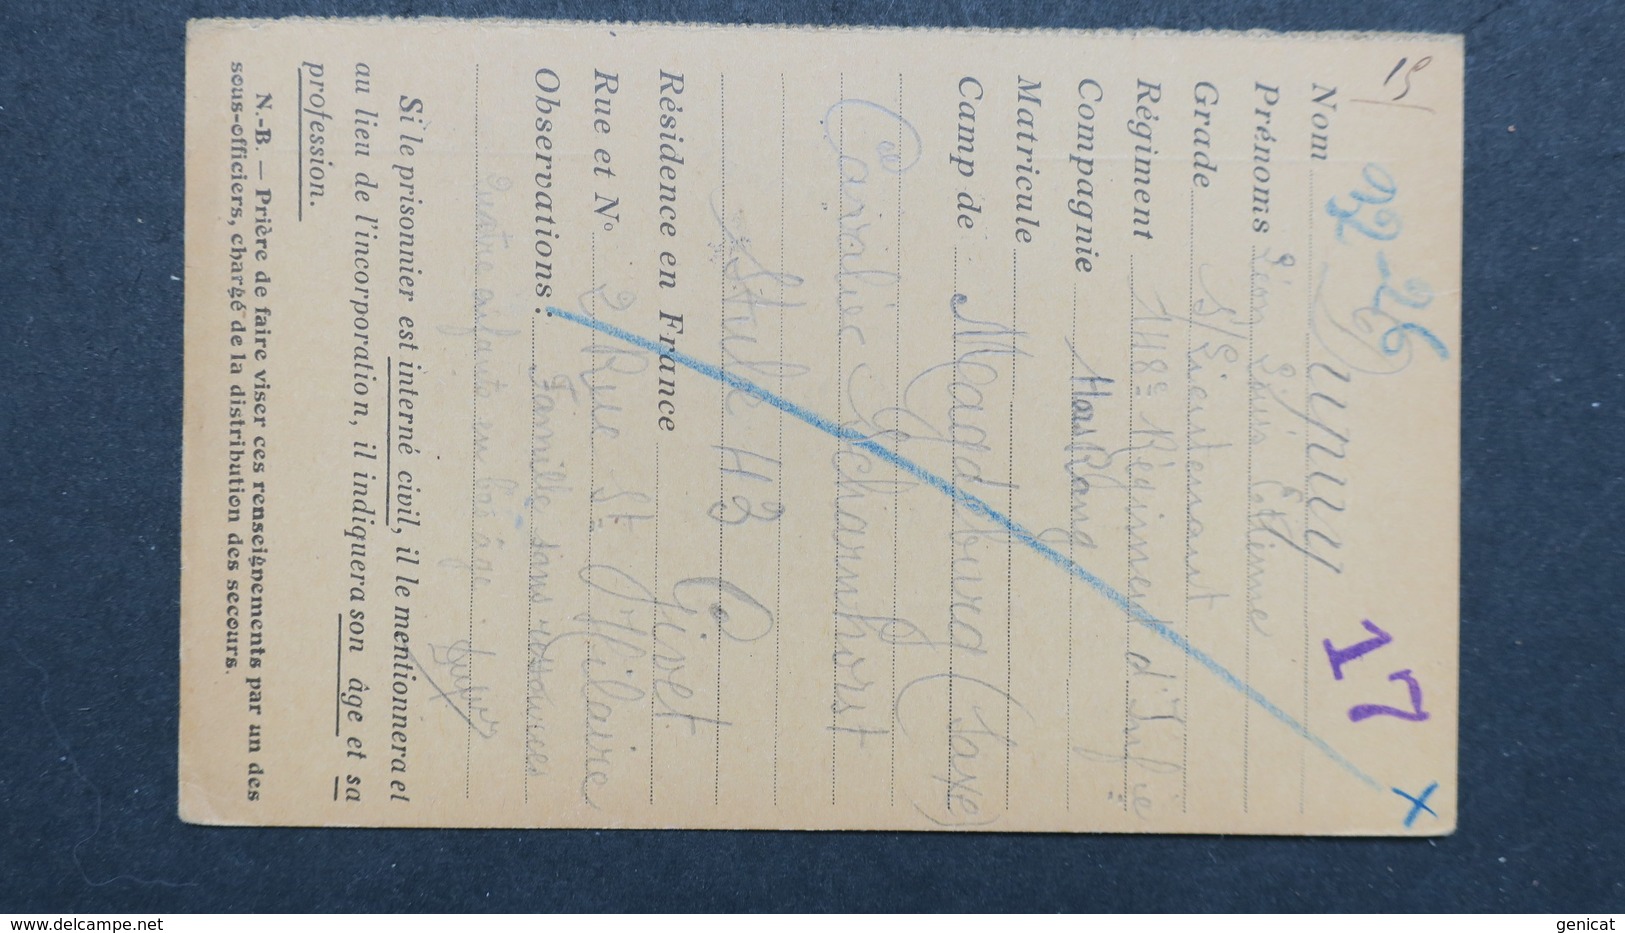 15/
92-26
17
Nom Dupuy
Prénoms Léon Louis Etienne
Grade S/Lieutenant
Régiment 148e Régiment d'Infie
Compagnie Hors Rang
Matricule
Camp de Magdeburg (Saxe)
Cavalier Scharnhorst
Stube H3
Résidence en France Givet
Rue et No 2 Rue St Hilaire
Observations : Famille sans ressources
quatre enfants en bas âge. Dupuy
Si le prisonnier est interné civil, il le mentionnera et
au lieu de l'incorporation, il indiquera son âge et sa
profession.
N.-B. — Prière de faire viser ces renseignements par un des
sous-officiers, chargé de la distribution des secours.
delcampe.net
genicat